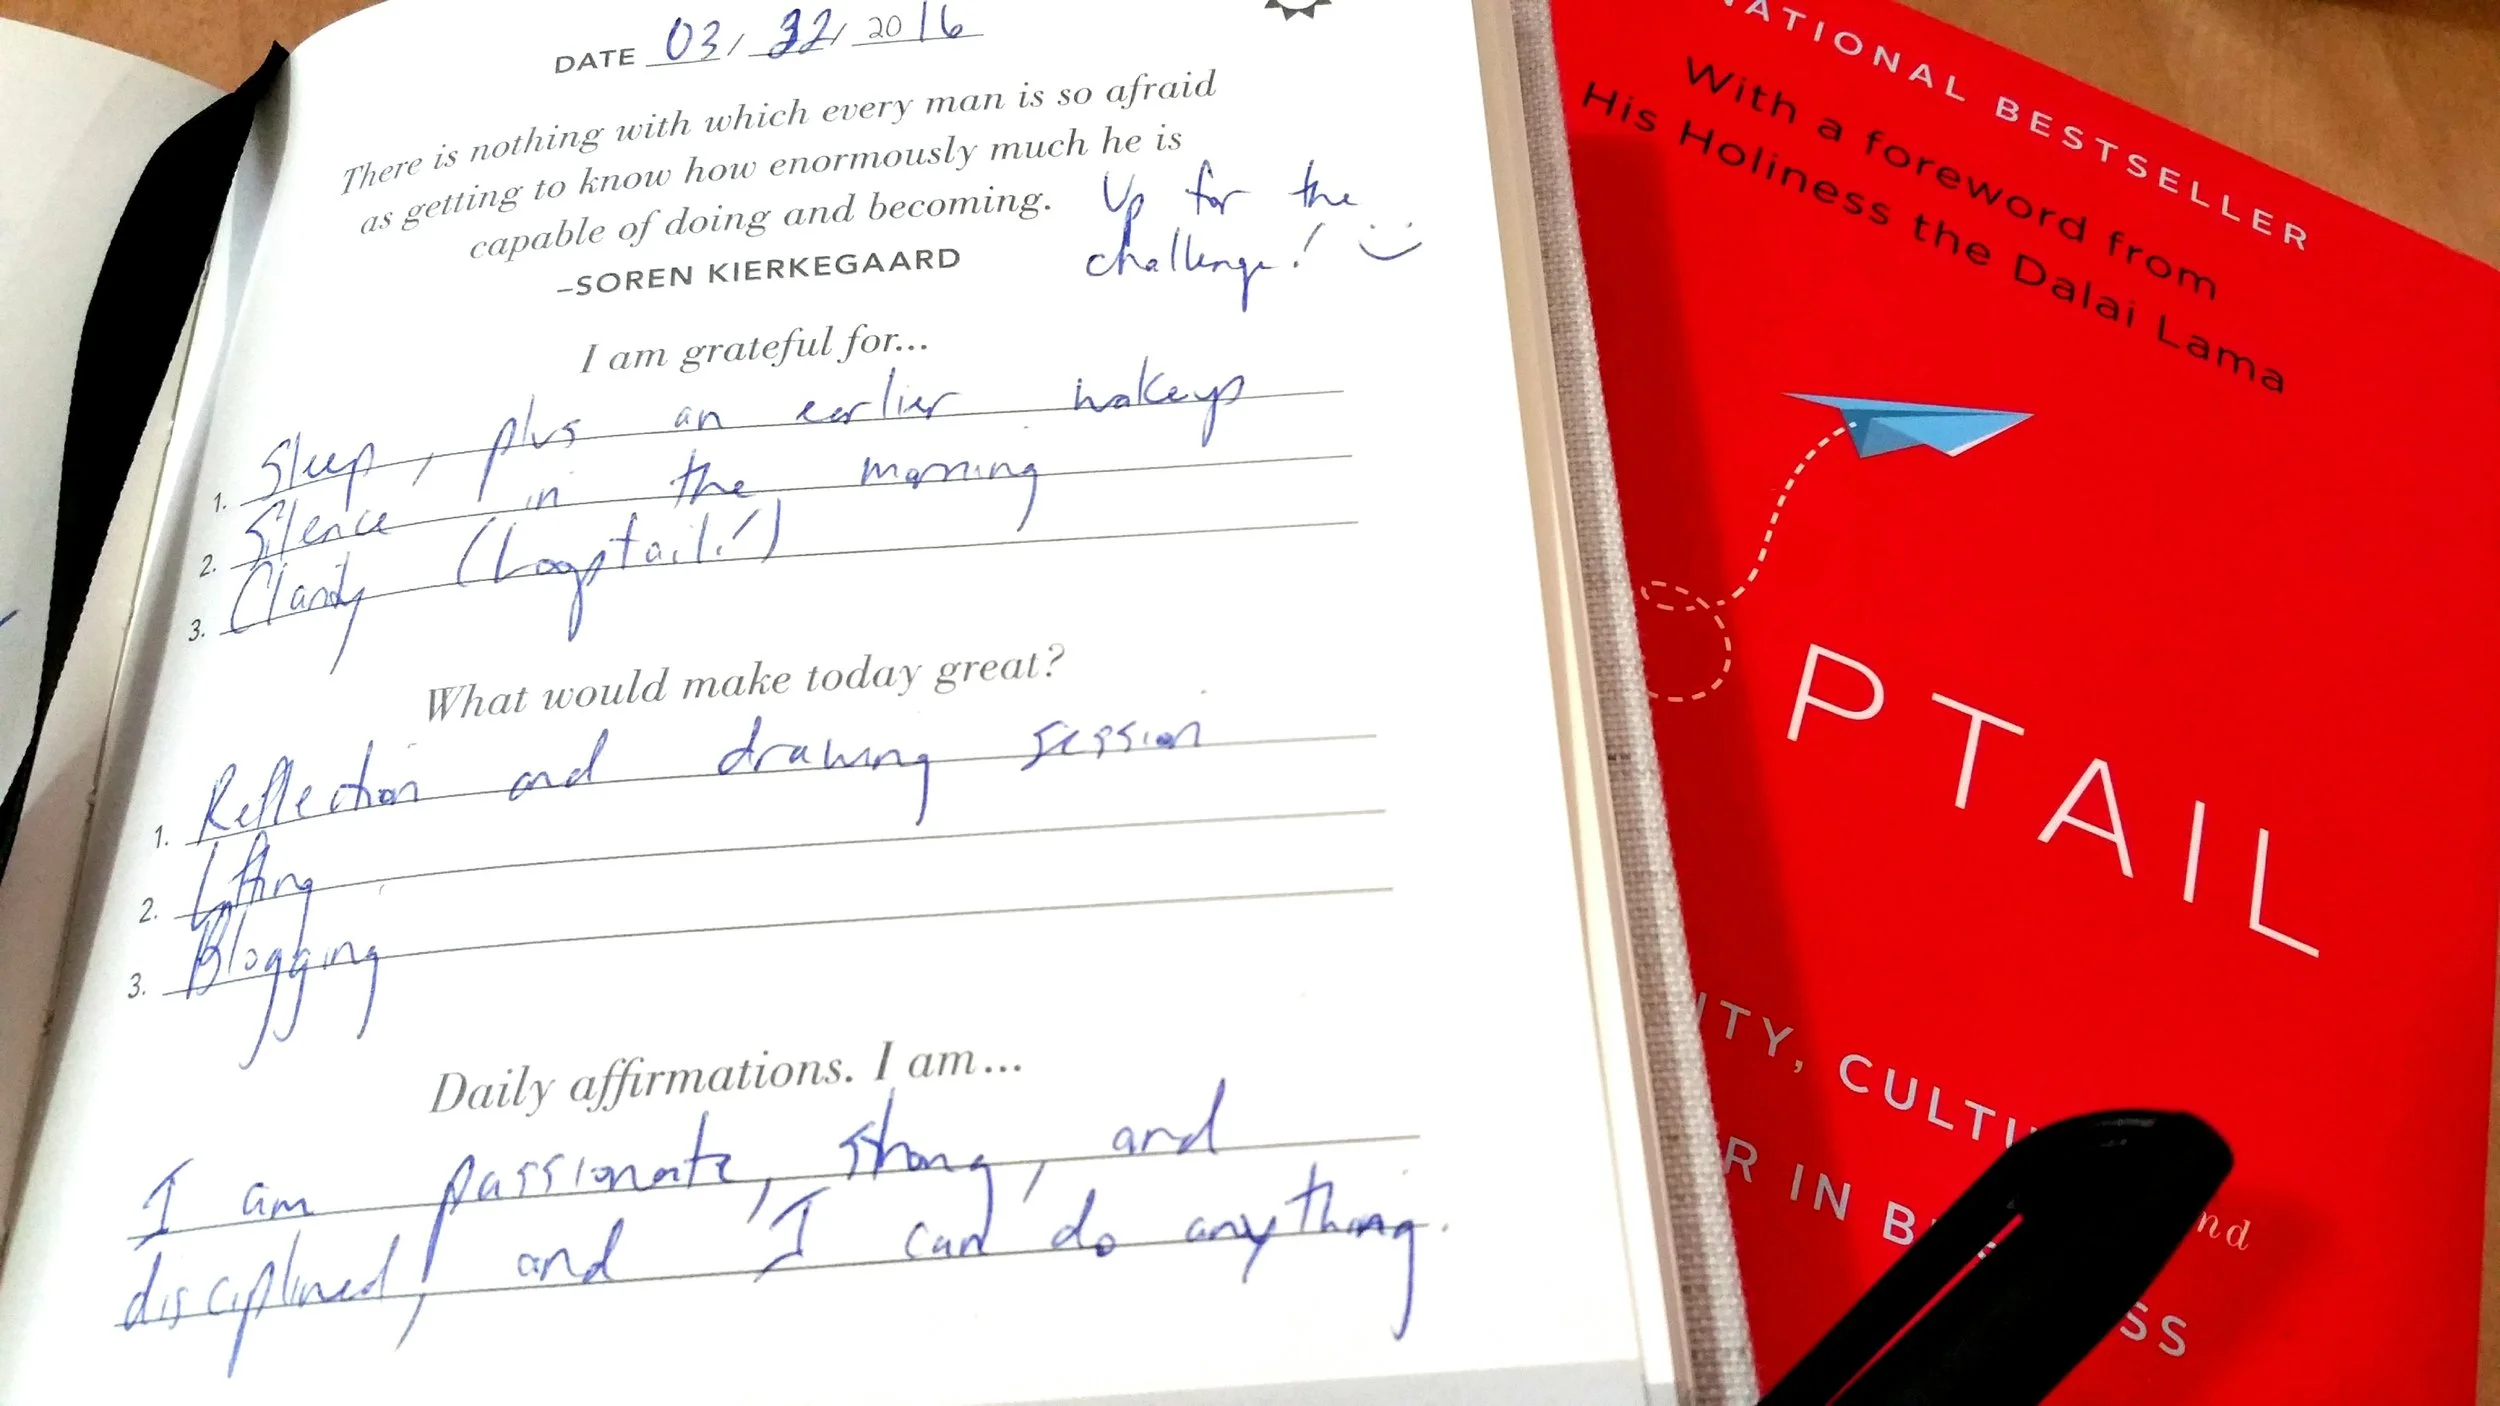 DATE 03/22/2016
There is nothing with which every man is so afraid
as getting to know how enormously much he is
capable of doing and becoming.
–SOREN KIERKEGAARD
Up for the
challenge! :)
I am grateful for...
1. Sleep, plus an earlier wakeup
2. Silence in the morning
3. Clarity (Looptail!)
What would make today great?
1. Reflection and drawing session
2. Lifting
3. Blogging
Daily affirmations. I am...
I am passionate, strong, and
disciplined, and I can do anything.
NATIONAL BESTSELLER
With a foreword from
His Holiness the Dalai Lama
PTAIL
ITY, CULTU
R IN B
nd
SS